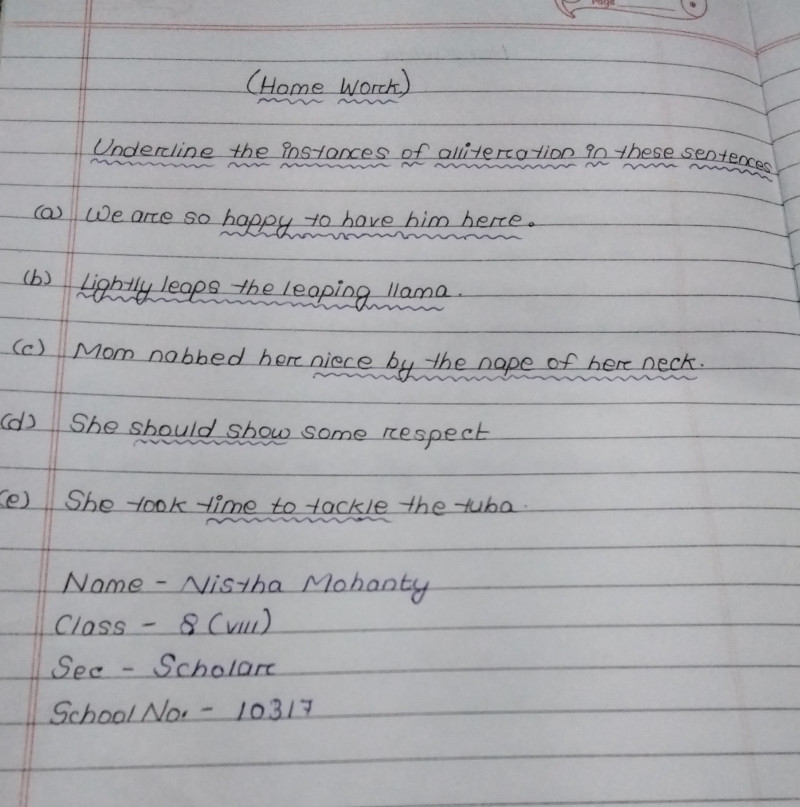 Page
(Home Work)
Underline the instances of alliteration in these sentences
(a) We are so happy to have him here.
(b) Lightly leaps the leaping llama.
(c) Mom nabbed her niece by the nape of her neck.
(d) She should show some respect
(e) She took time to tackle the tuba.
Name - Nistha Mohanty
Class - 8 (VIII)
Sec - Scholar
School No. - 10317